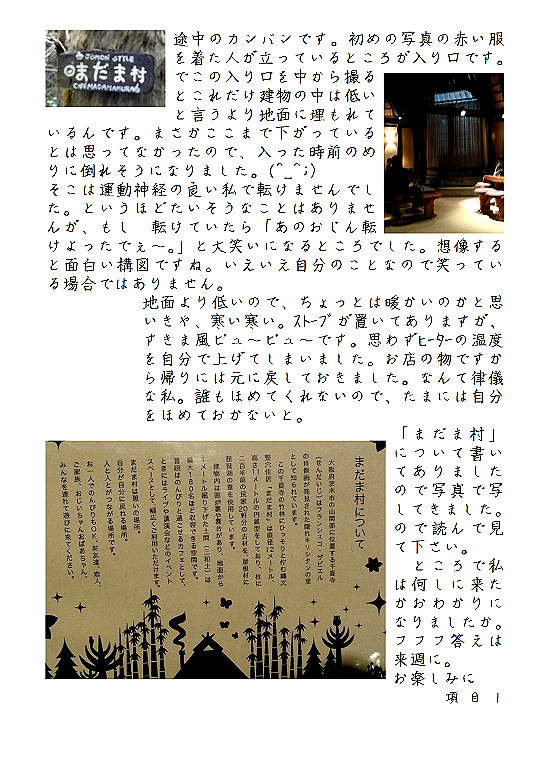 JOMON STYLE
まだま村
CAFE MADAMURA
途中のカンバンです。初めの写真の赤い服
を着た人が立っているところが入り口です。
でこの入り口を中から撮る
とこれだけ建物の中は低い
と言うより地面に埋もれて
いるんです。まさかここまで下がっている
とは思ってなかったので、入った時前のめ
りに倒れそうになりました。(^_^;)
そこは運動神経の良い私で転けませんでし
た。というほどたいそうなことはありませ
んが、もし　転けていたら「あのおじん転
けよったでぇ～。」と大笑いになるところでした。想像する
と面白い構図ですね。いえいえ自分のことなので笑ってい
る場合ではありません。
地面より低いので、ちょっとは暖かいのかと思
いきや、寒い寒い。ｽﾄｰﾌﾞが置いてありますが、
すきま風ビュ～ビュ～です。思わずﾋｰﾀｰの温度
を自分で上げてしまいました。お店の物ですか
ら帰りには元に戻しておきました。なんて律儀
な私。誰もほめてくれないので、たまには自分
をほめておかないと。
まだま村について
大阪府茨木市の山間部に位置する千提寺
（せんだいじ）はフランシスコ・ザビエル
の肖像画が発見された隠れキリシタンの里
として知られています。
この千提寺の竹林にひっそりと佇む縄文
竪穴住居「まだま村」は直径12メートル、
高さ11メートルの円錐型をしており、柱に
二百年前の民家20軒分の古材を、屋根材に
琵琶湖の葦を使用しています。
建物内は囲炉裏や舞台があり、地面から
1メートル掘り下げた土間（三和土）は
最大180名ほど収容できる空間です。
普段はのんびりと過ごせるカフェとして、
ときにはライブや講演会などのイベント
スペースとして、幅広くご利用いただけます。
まだま村は憩いの場所。
自分が自分に戻れる場所。
人と人とがつながる場所です。
お一人でのんびりもOK。お友達、恋人、
ご家族、おじいちゃんおばあちゃん、
みんなを連れて遊びに来てください。
「まだま村」
について書い
てありました
ので写真で写
してきました。
ので読んで見
て下さい。
ところで私
は何しに来た
かおわかりに
なりましたか。
フフフ答えは
来週に。
お楽しみに
項目1